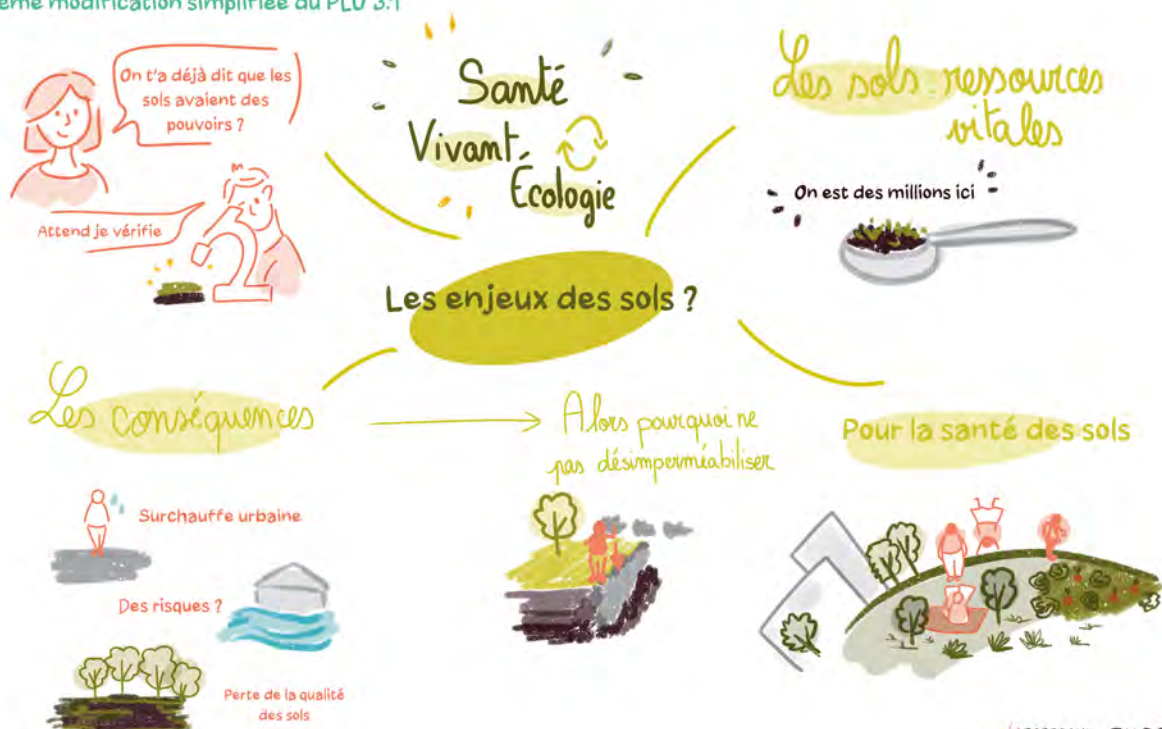 modification simplifiée du PLU 3.1
On t'a déjà dit que les
sols avaient des
pouvoirs ?
Attend je vérifie
Santé
Vivant
Écologie
Les sols : ressources
vitales
On est des millions ici
Les enjeux des sols ?
Les conséquences
Alors pourquoi ne
pas désimperméabiliser
Pour la santé des sols
Surchauffe urbaine
Des risques ?
Perte de la qualité
des sols